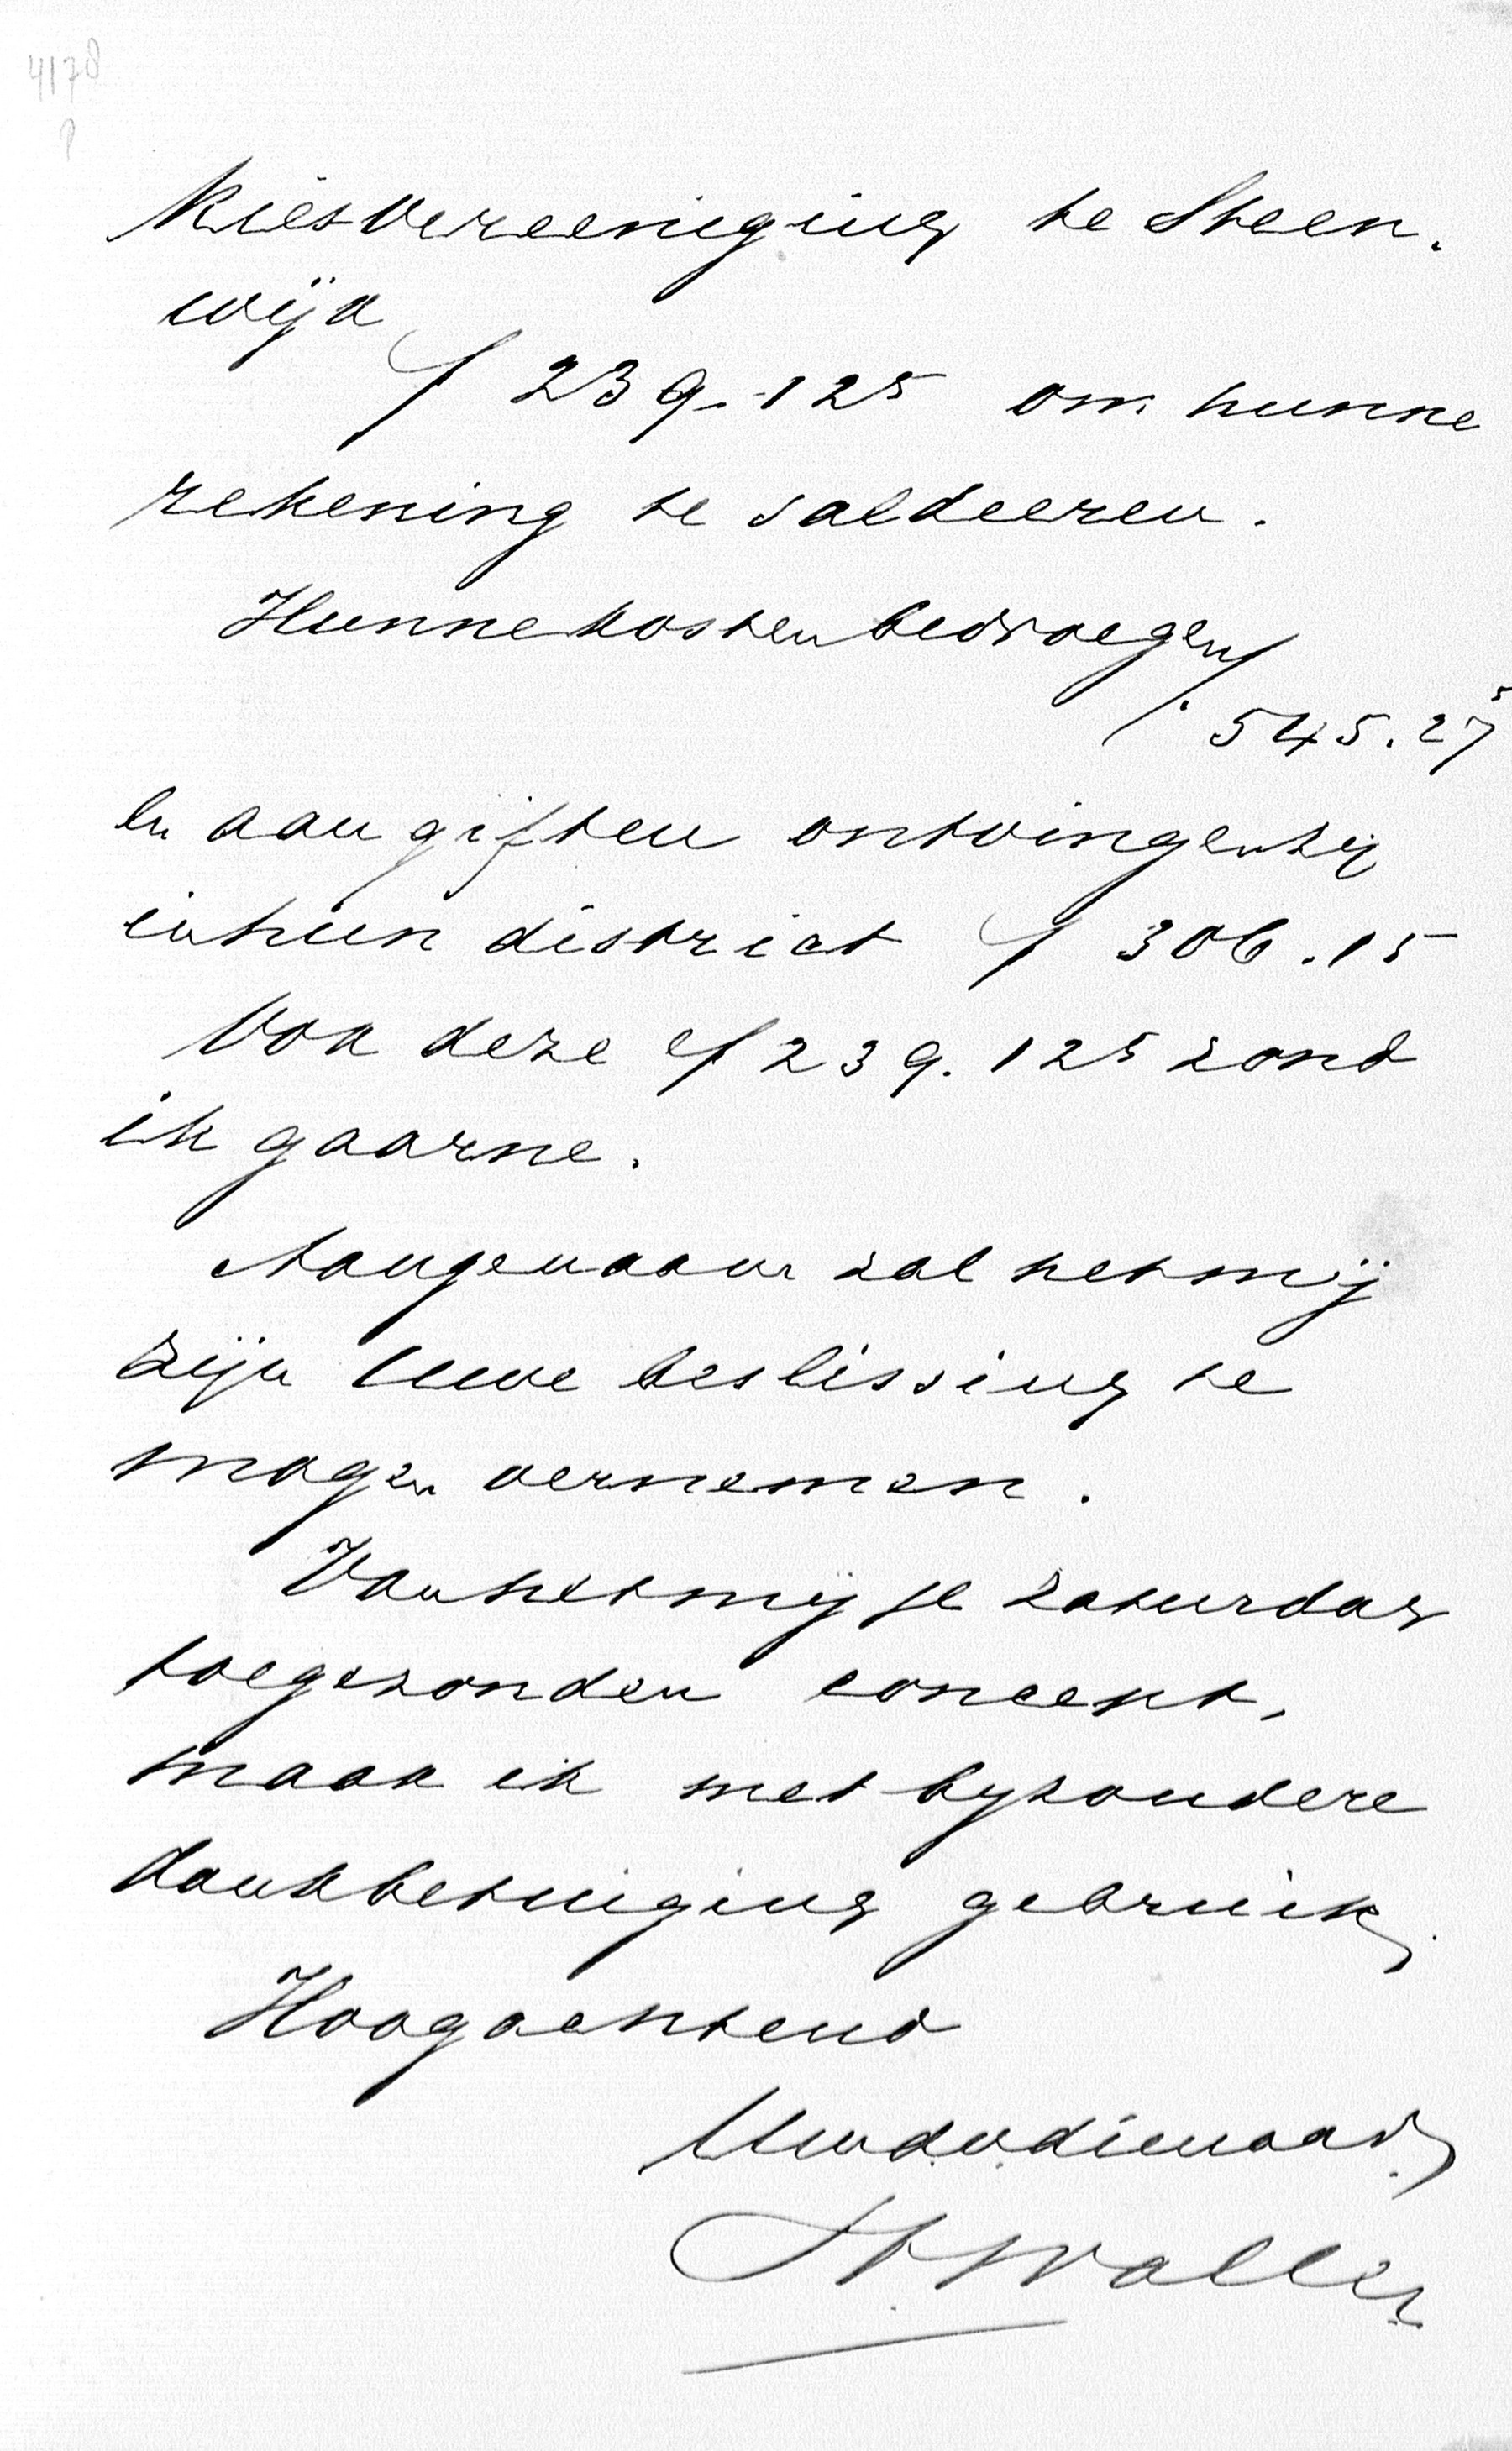 4178
Kiesvereeniging te Steen.
wijk
f 239.125 om hunne
rekening te saldeeren.
Hunne kosten bedroegen
f. 545.27⁵
en aan giften ontvingen zij
in hun district f 306.15
Ook deze f 239.125 zond
ik gaarne.
Aangenaam zal het mij
zijn Uwe beslissing te
mogen vernemen.
Van het mij jl Zaturdag
toegezonden concept,
maak ik met byzondere
dankbetuiging gebruik.
Hoogachtend
Uwdwdienaar
Waller